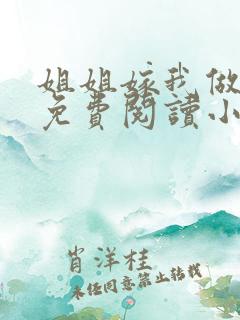 姐姐嫁我做
免費閱讀小
肖洋桂
未经同意禁止转载